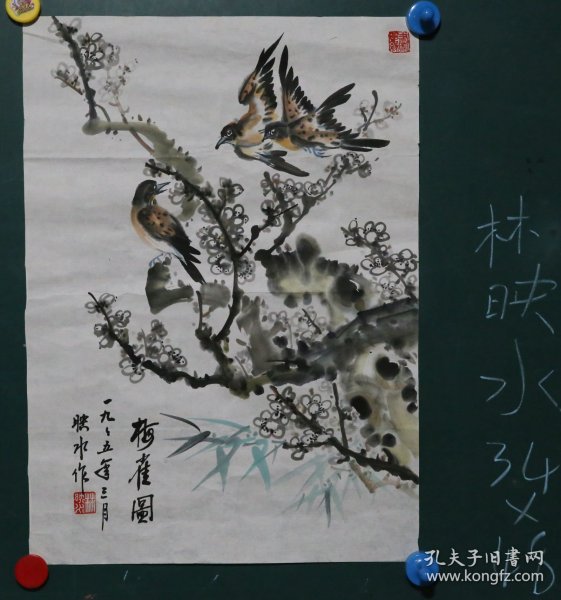 梅雀圖
一九八五年三月
映水作
林映水34×46
孔夫子旧書网
www.kongfz.com